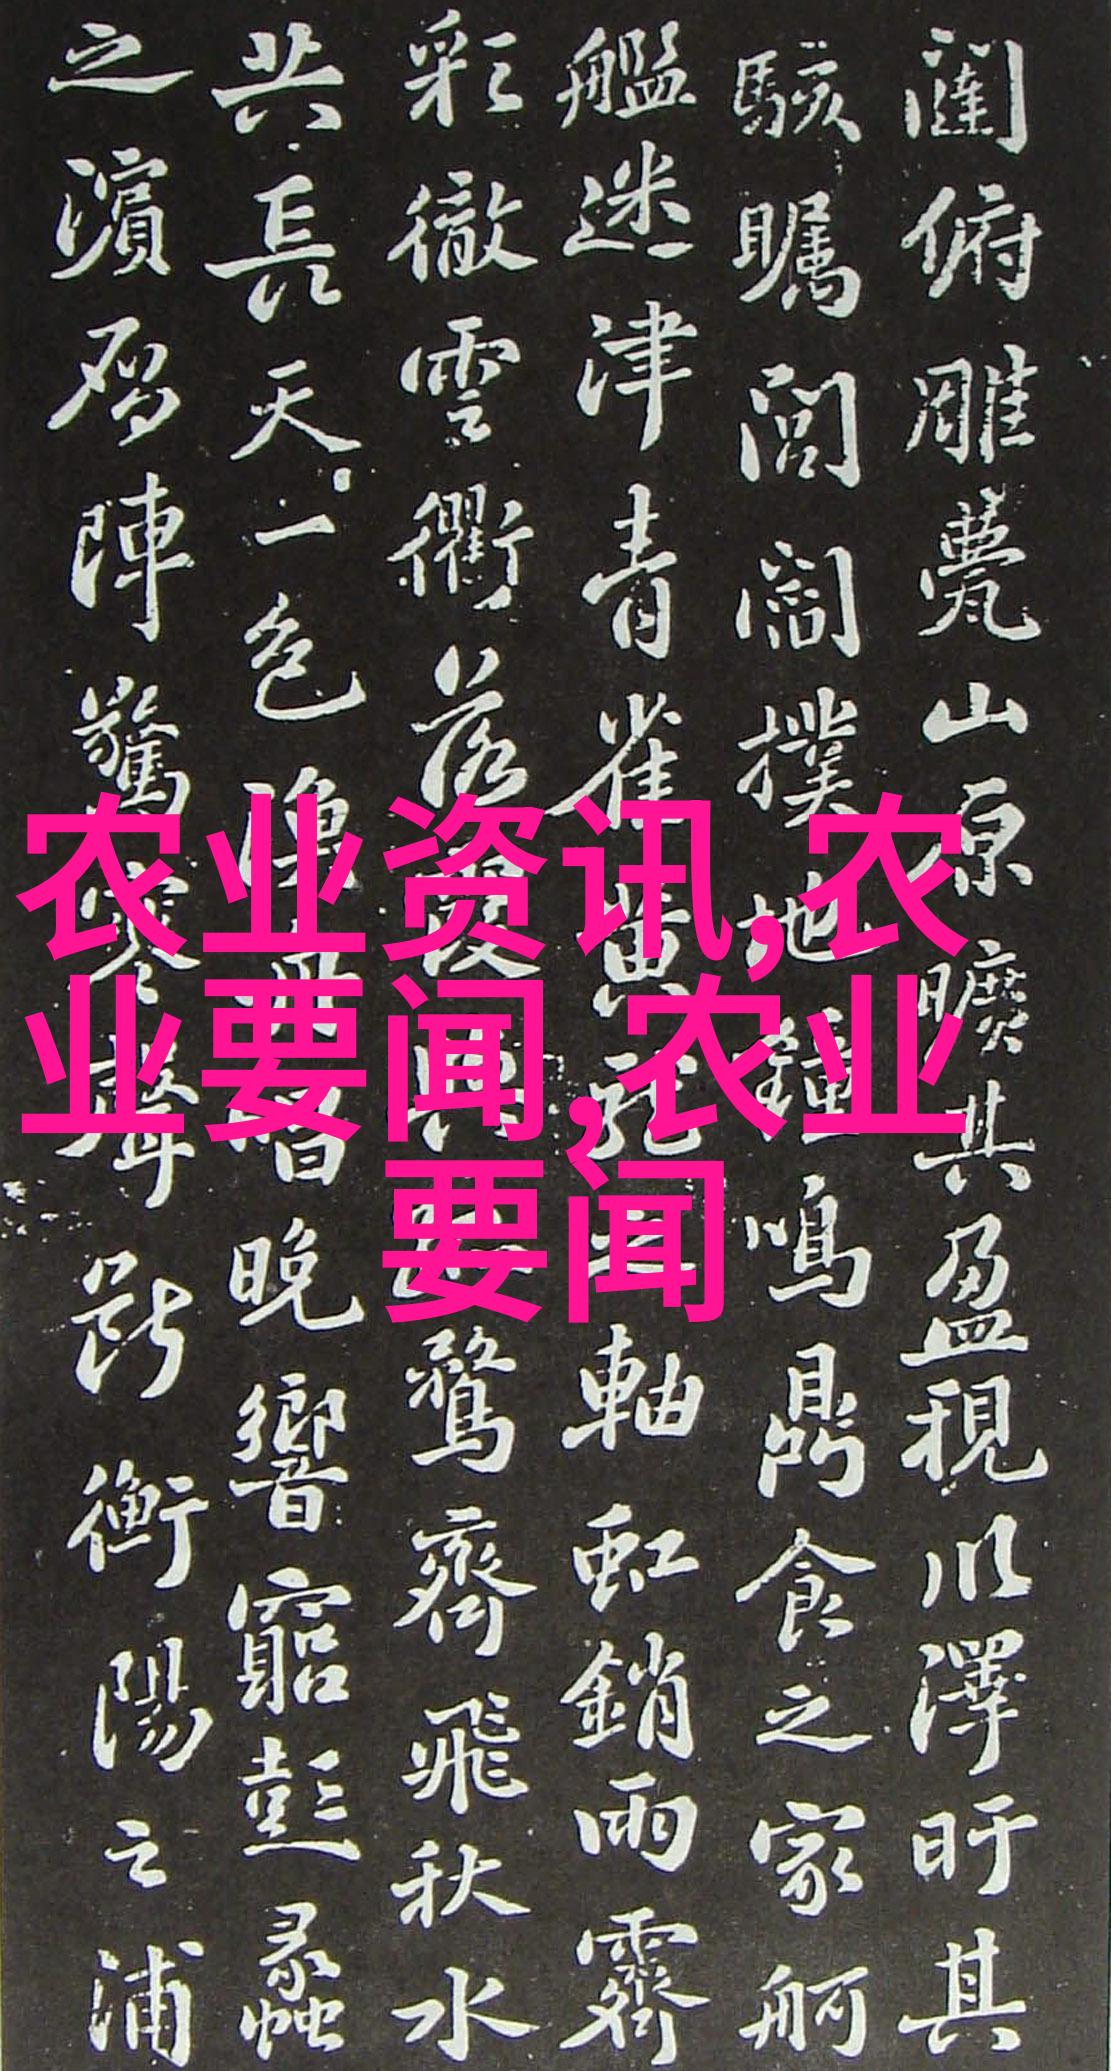 闥俯雕甍山原曠其盈視川澤盱其
駭矚閭閻撲地鐘鳴鼎食之家舸
艦迷津青雀黃龍之軸虹銷雨霽
彩徹雲衢落霞與孤鶩齊飛秋水
共長天一色漁舟唱晚響窮彭蠡
之濱雁陣驚寒聲斷衡陽之浦
农业资讯,农
业要闻,农业
要闻